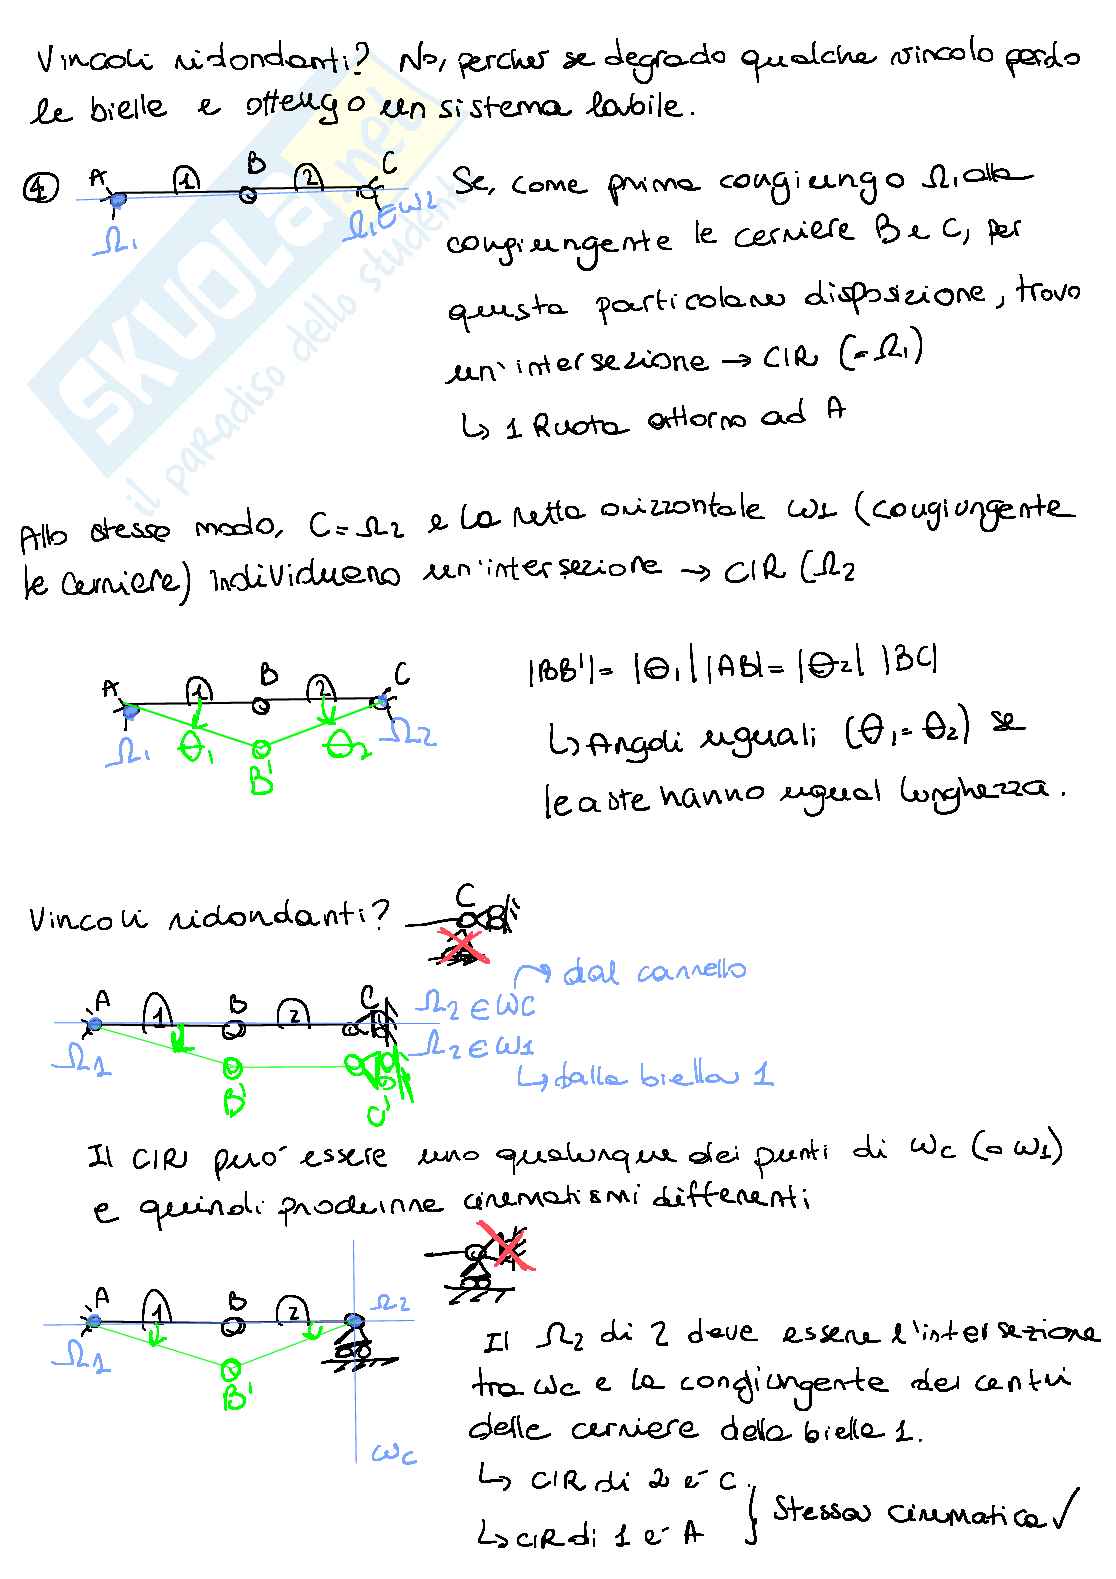 Vincoli ridondanti? No, perché se degrado qualche vincolo perdo
le bielle e ottengo un sistema labile.
4
A 1 B 2 C
Ω1 Ω1 ∈ ω2
Se, come prima congiungo Ω1 alla
congiungente le cerniere B e C, per
questa particolare disposizione, trovo
un'intersezione → CIR (= Ω1)
↳ 1 Ruota attorno ad A
Allo stesso modo, C = Ω2 e la retta orizzontale ω1 (congiungente
le cerniere) individuano un'intersezione → CIR (Ω2
A 1 B 2 C
Ω1 θ1 B' θ2 Ω2
|BB'| = |θ1| |AB| = |θ2| |BC|
↳ Angoli uguali (θ1 = θ2) se
le aste hanno ugual lunghezza.
Vincoli ridondanti?
C
dal carrello
A 1 B 2 C
Ω2 ∈ ωC
Ω2 ∈ ω1
Ω1 B' C'
↳ dalla biella 1
Il CIR può essere uno qualunque dei punti di ωc (o ω1)
e quindi produrre cinematismi differenti
A 1 B 2 Ω2
Ω1 B'
ωC
Il Ω2 di 2 deve essere l'intersezione
tra ωc e la congiungente dei centri
delle cerniere della biella 1.
↳ CIR di 2 è C
↳ CIR di 1 è A
} Stessa cinematica ✓
SKUOLA.net
il paradiso dello studente